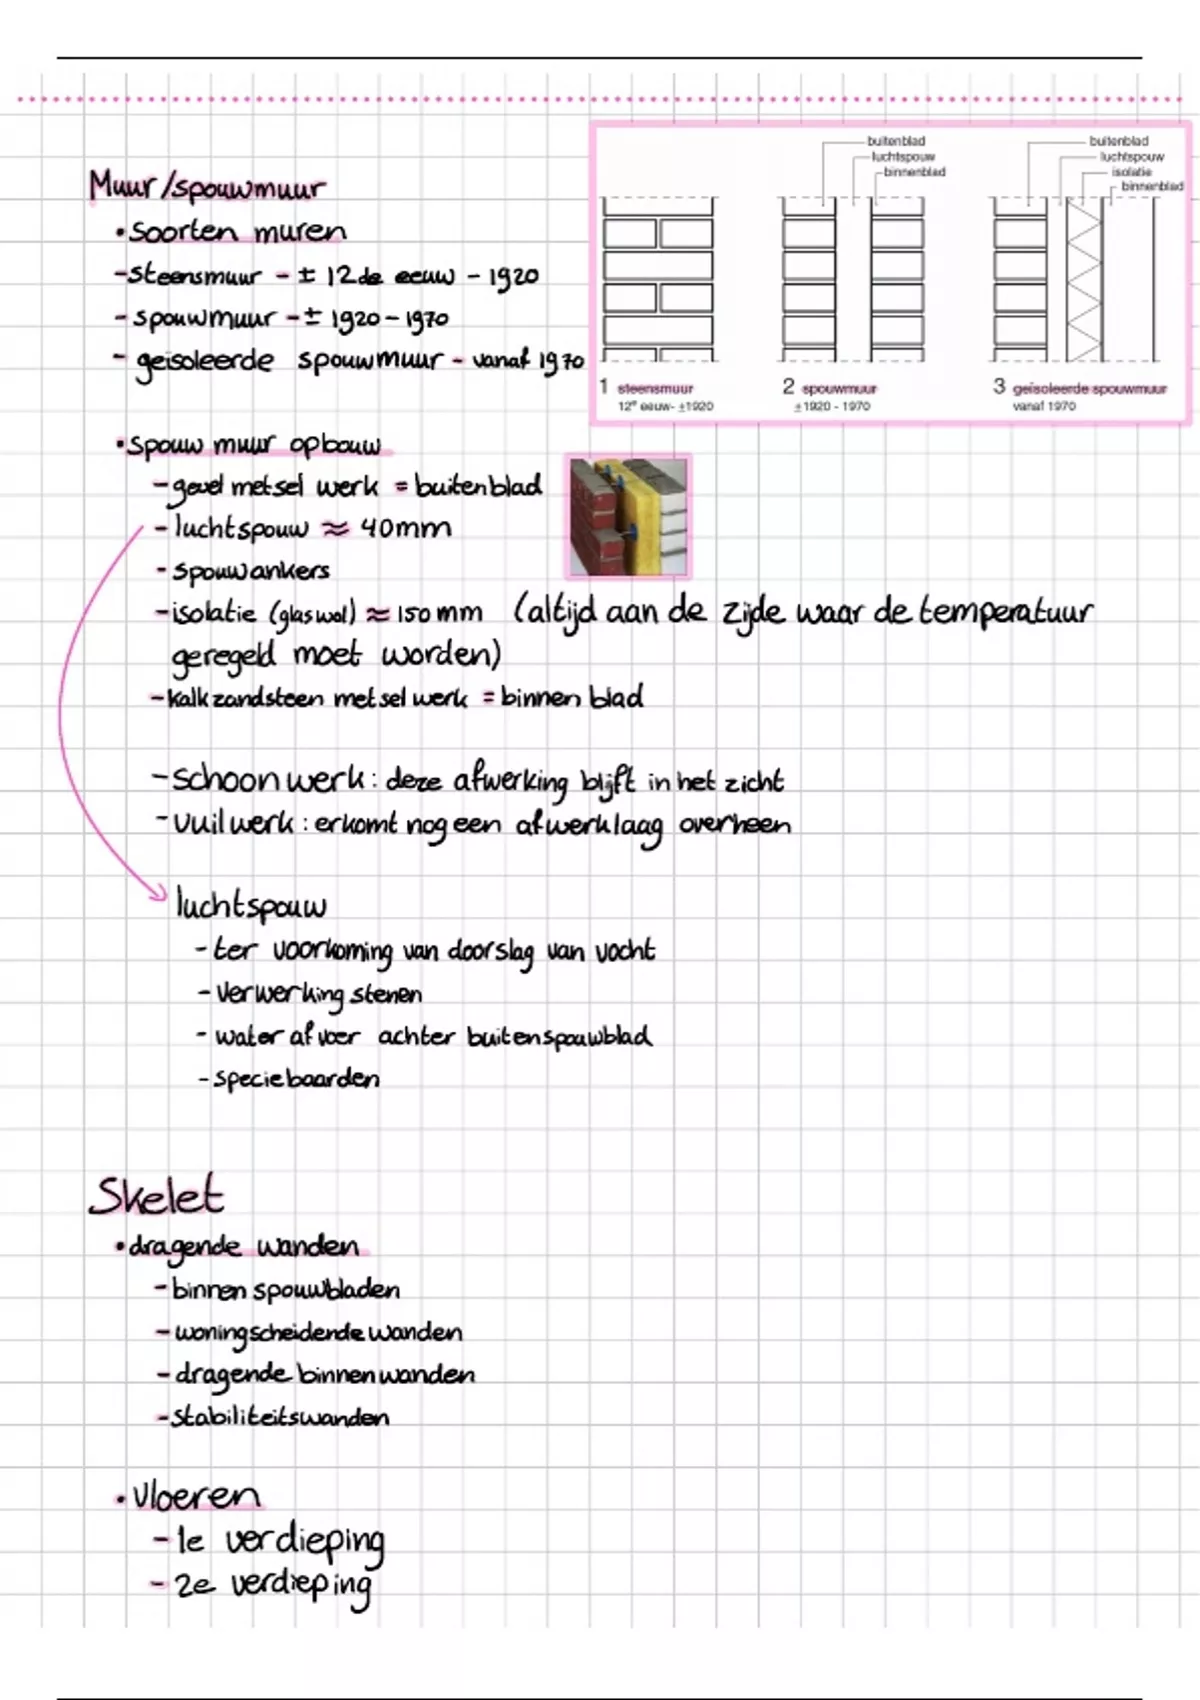 Muur/spouwmuur
• Soorten muren
- Steensmuur - ± 12de eeuw - 1920
- spouwmuur - ± 1920 - 1970
- geisoleerde spouwmuur - vanaf 1970
buitenblad
luchtspouw
binnenblad
buitenblad
luchtspouw
isolatie
binnenblad
1 steensmuur
12e eeuw- ±1920
2 spouwmuur
±1920 - 1970
3 geïsoleerde spouwmuur
vanaf 1970
• Spouw muur opbouw
- gevel metsel werk = buitenblad
- luchtspouw ≈ 40mm
- spouwankers
- isolatie (glaswol) ≈ 150mm (altijd aan de zijde waar de temperatuur
geregeld moet worden)
- Kalkzandsteen metselwerk = binnen blad
- Schoon werk: deze afwerking blijft in het zicht
- Vuil werk: er komt nog een afwerklaag overheen
luchtspouw
- ter voorkoming van doorslag van vocht
- Verwerking stenen
- water afvoer achter buitenspouwblad
- speciebaarden
Skelet
• dragende wanden
- binnen spouwbladen
- woningscheidende wanden
- dragende binnenwanden
- Stabiliteitswanden
• Vloeren
- 1e verdieping
- 2e verdieping